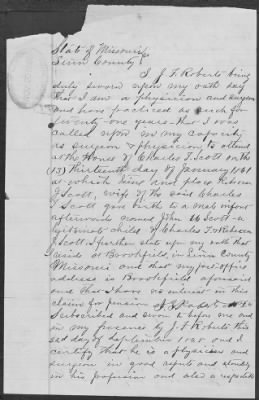 State of Missouri
Linn County
I, J. F. Roberts being
duly sworn upon my oath say
that I am a physician and surgeon
and have practiced as such for
twenty-one years - that I was
called upon in my capacity
as surgeon & physician to attend
at the House of Charles T. Scott on the
(13) thirteenth day of January 1861
at which time and place
J. Scott, wife of the said Charles
T. Scott gave birth to a male infant
afterwards named John Scott - a
legitimate child of Charles T. &
J. Scott I further state upon my oath that
I reside at Brookfield, in Linn County
Missouri and that my post-office
address is Brookfield aforesaid
and that I have no interest in this
claim for pension J. F. Roberts M.D.
Subscribed and sworn to before me and
in my presence by J. F. Roberts this
3rd day of September and I
certify that he is a physician and
surgeon in good repute and
in his profession and also a reputable